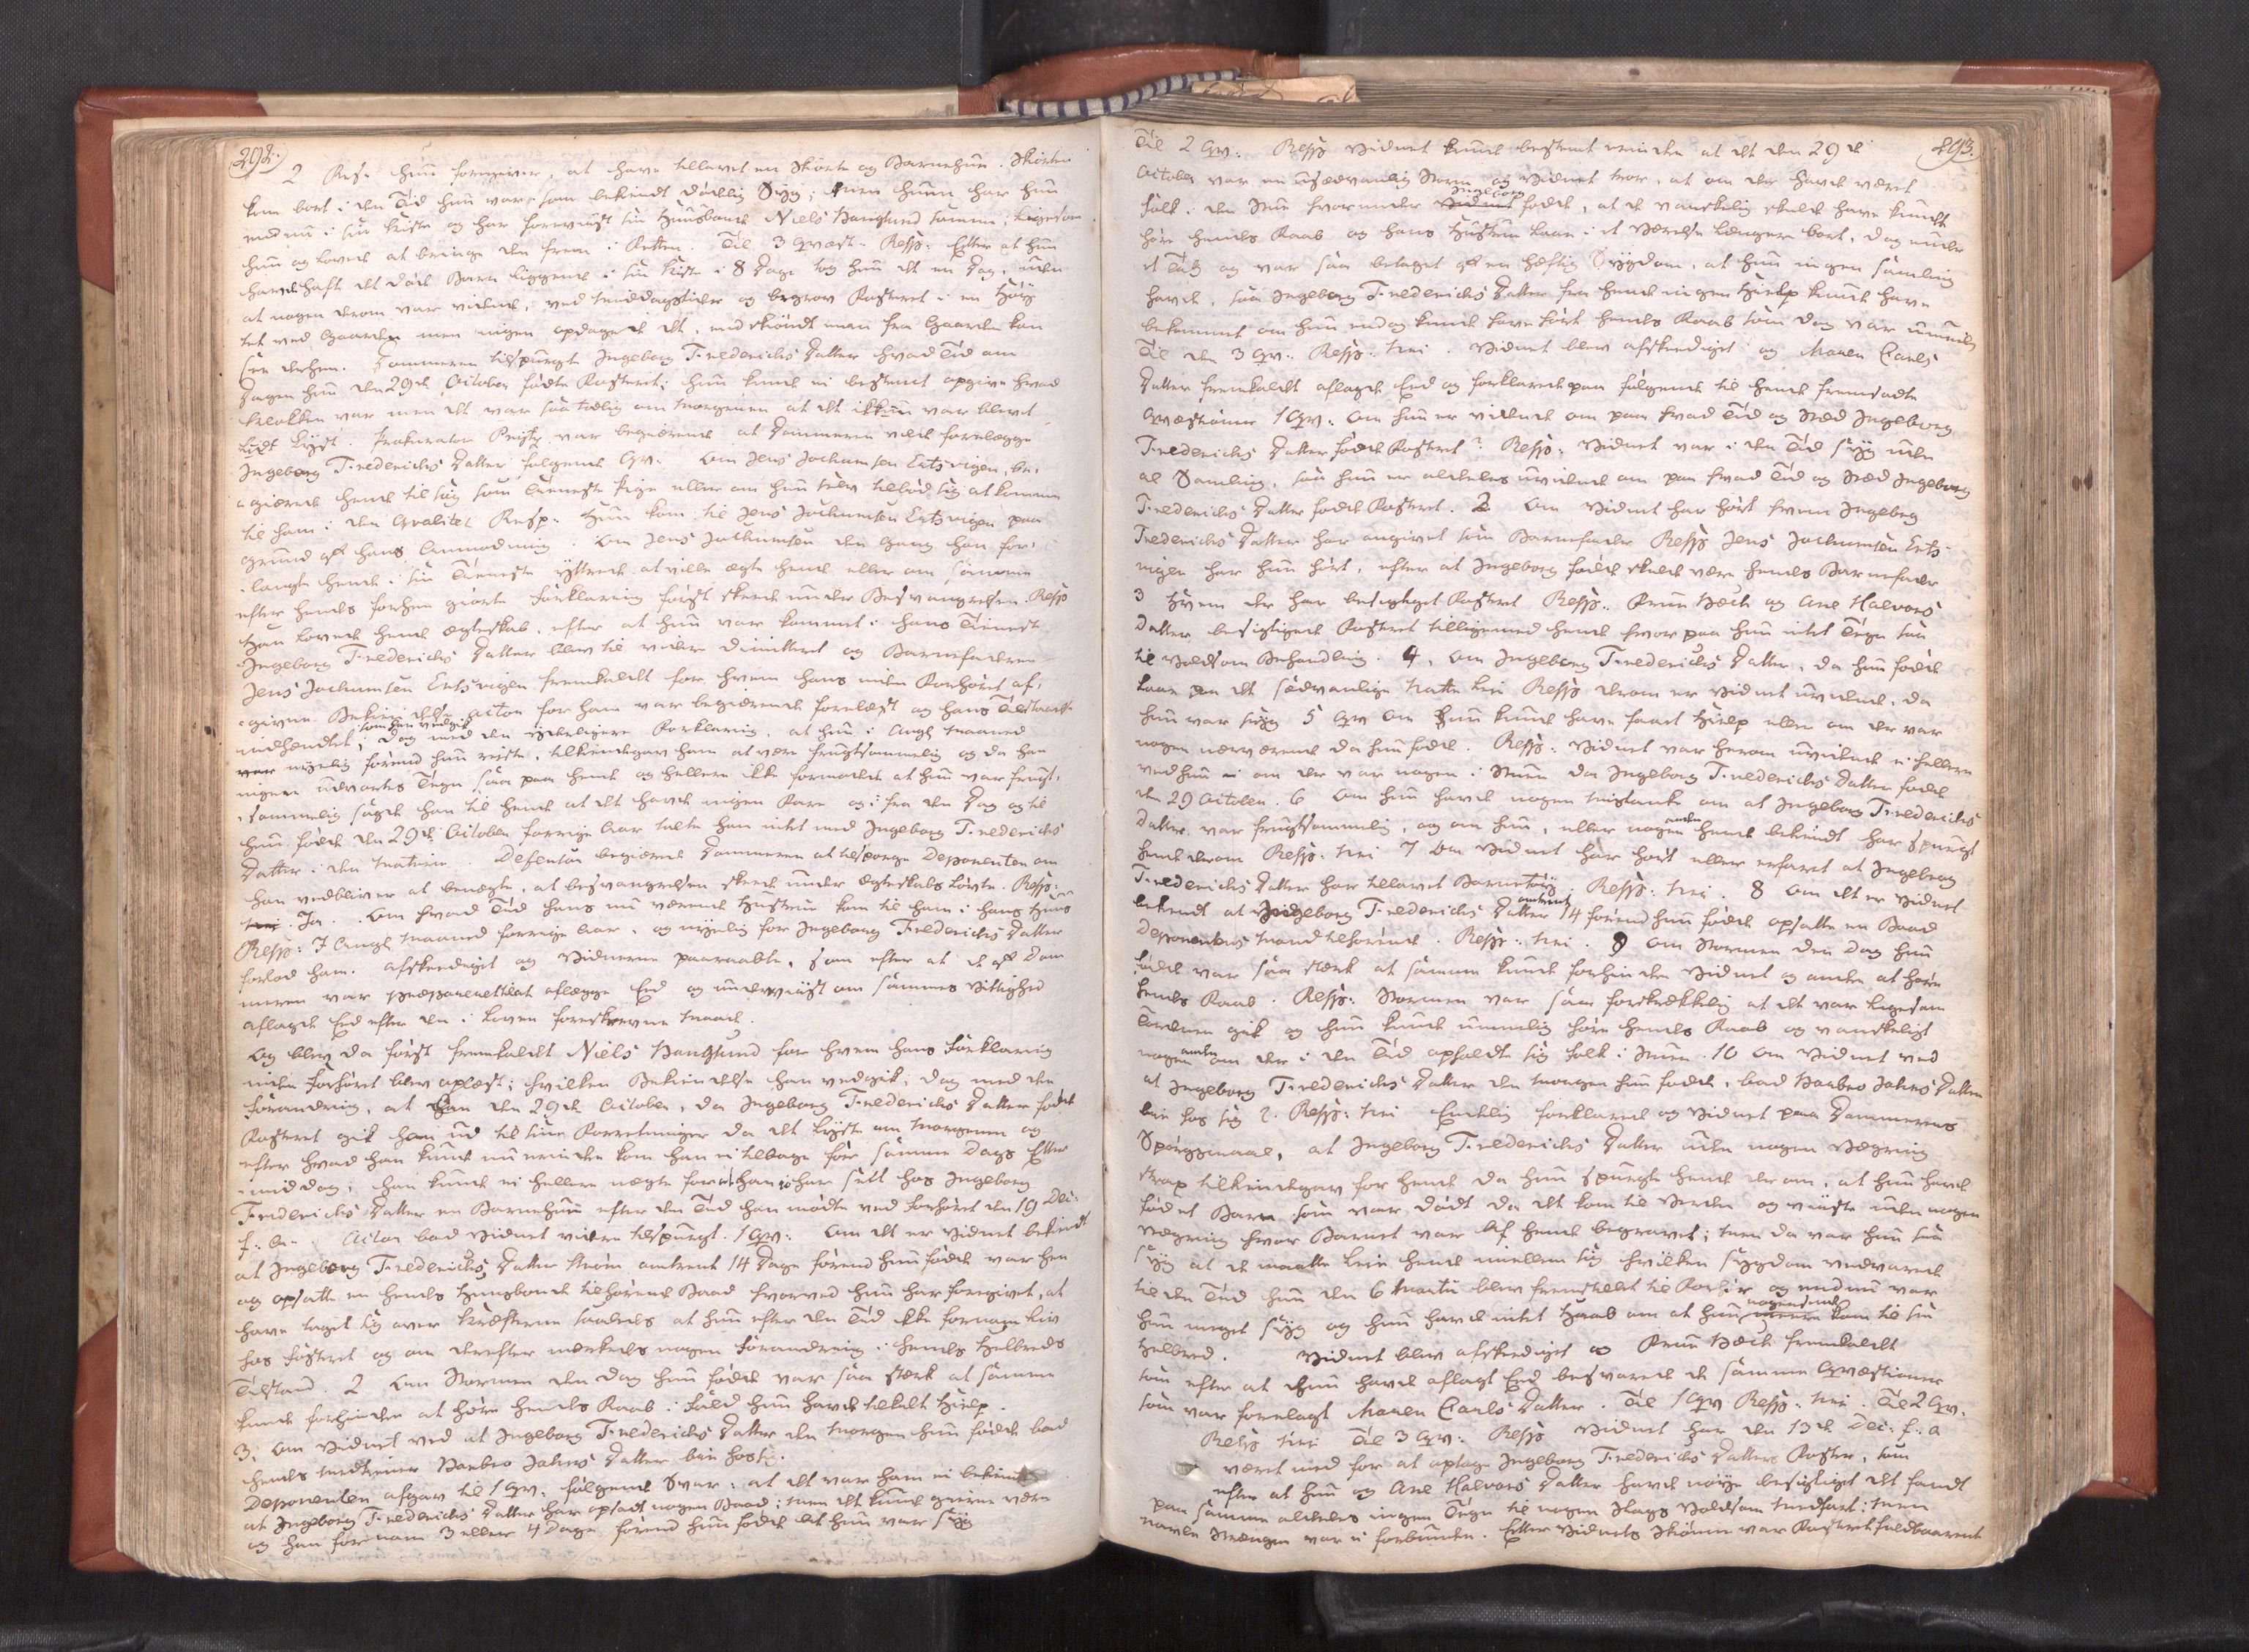 292.
2 Resp: hun foregiver, at have tillavet en Skiorte og Barnehue. Skiorten
kom bort i den Tid hun var som bekiendt dødelig Syg; men huuen har hun
endnu i sin Kiste og har foreviist sin Huusbonde Niels Hanglund samme; ligesom
hun og lovede at bringe den frem i Retten. Til 3 Qvæst: Resp: Efter at hun
havde haft det døde Barn liggende i sin Kiste i 8 Dage tog hun det en Dag, uden
at nogen derom var vidende, ved middagstider og begrov Fosteret i en Høy
tet ved Gaarden men ingen opdagede det, endskiøndt man fra Gaarden kan
see derhen. Dommeren tilspurgte Ingeborg Frederichs Datter hvad Tid om
Dagen hun den 29de October fødte Fosteret; hun kunde ei bestemt opgive hvad
Klokken var men det var saa tidlig om Morgenen at det ikkun var blevet
lidt Lyst. Prokurator var begiærende at Dommeren vilde forelægge
Ingeborg Frederichs Datter følgende Qv: Om Jens Jochumsen Ertsvigen be-
giærede hende til sig som Tieneste Pige eller om hun selv tilbød sig at komme
til ham i den Qvalitet Resp: Hun kom til Jens Jochumsen Ertsvigen paa
Grund af hans Anmodning. Om Jens Jochumsen den Gang han for-
langte hende i sin Tieneste yttrede at ville ægte hende eller om samme
efter hendes forhen giorte Forklaring først skeede under Besvangrelsen. Resp
Han lovede hende Ægteskab, efter at hun var kommet i hans Tieneste
Ingeborg Frederichs Datter blev til videre dimitteret og Barnefaderen
Jens Jochumsen Ertsvigen fremkaldt for hvem hans under Forhøret af-
givne Bekiendelse Actor for ham var begiærende forelæst og hans Tilstaaelse
indhendtet; som han vedgik Dog med den yderligere Forklaring, at hun i Augt Maaned
nyelig førend hun reiste, tilkiendegav ham at være frugtsommelig og da han
ingen udvortes Tegn saae paa hende og hellere ikke formodede at hun var frugt-
sommelig sagde han til hende at det havde ingen Fare og i fra den Dag og til
hun fødte den 29de October forrige Aar talte han intet med Ingeborg Frederichs
Datter i den Materie. Defensor begiærede Dommeren at tilspørge Deponenten om
han vedbliver at benægte, at besvangrelsen skeede under Ægteskabs Løvte. Resp:
Ja. Om hvad Tid hans nu værende Hustrue kom til ham i hans Huus
Resp: I Augt Maaned forrige Aar, og nyelig før Ingeborg Frederichs Datter
forlod ham. Afskeediget og Vidnerne paaraabte, som efter at de af Dom
meren var præpareret til at aflægge Eed og underviist om sammes Vittighed
aflagde Eed efter den i Loven foreskrevne Maade.
Og blev da først fremkaldet Niels Hanglund for hvem hans Forklaring
under Forhøret blev oplæst; hvilken Bekiendelse han vedgik; dog med den
Forandring, at han den 29de October, da Ingeborg Frederichs Datter fødte
Fosteret gik han ud til sine Forretninger da det lyste om Morgenen og
efter hvad han kunde nu erindre kom han ei tilbage før samme Dags Efter
middag; han kunde ei hellere nægte for at han io har seet hos Ingeborg
Frederichs Datter en Barnehue efter den Tid han mødte ved Forhøret den 19 Dec:
f: A: Actor bad Vidnet videre tilspurgt. 1 Qv: Om det er Vidnet bekiendt
at Ingeborg Frederichs Datter omtrent 14 Dage førend hun fødte var hen
og opsatte en hendes Huusbonde tilhørende Baad hvorved hun har foregivet, at
have taget sig over Kræfterne saaledes at hun efter den Tid ikke fornam Liv
hos Fosteret og om derefter mærkedes nogen Forandring i hendes Helbreds
Tilstand. 2 Om Stormen den Dag hun fødte var saa stærk at samme
kunde forhindre at høre hendes Raab i Fald hun havde kaldt Hielp.
3. Om Vidnet ved at Ingeborg Frederichs Datter den Morgen hun fødte bad
hendes Medtiener Barbro Jahns Datter blive hos sig.
Deponenten afgav til 1 Qv: følgende Svar: at det var ham ei bekiendt
at Ingeborg Frederichs Datter har opsadt nogen Baad; men det kunde gierne være
og han fornam 3 eller 4 Dage førend hun fødte at hun var Syg
293.
Til 2 Qv: Resp Vidnet kunde bestemt erindre at det den 29de
October var en usædvanlig Storm og Vidnet troer, at om der havde været
Folk i den Stue hvorunder Ingeborg fødte, at de vanskelig skulde have kundet
høre hendes Raab og hans Hustrue laae i et Værelse længere bort, dog under
et Tag og var saa betaget af en hæftig Sygdom, at hun ingen samling
havde, saa Ingeborg Frederichs Datter fra hende ingen Hielp kunde have
bekommet om hun endog kunde have hørt hendes Raab som dog var umuelig
Til den 3 Qv: Resp: Nei. Vidnet blev afskeediget og Maren Carls
Datter fremkaldt aflagde Eed og forklarede paa følgende til hende fremsadte
Qvæstioner 1 Qv: Om hun er vidende om paa hvad Tid og Sted Ingeborg
Frederichs Datter fødte Fosteret? Resp: Vidnet var i den Tid syg uden
al Samling, saa hun er aldeles uvidende om paa hvad Tid og Sted Ingeborg
Frederichs Datter fødte Fosteret. 2 Om Vidnet har hørt hvem Ingeborg
Frederichs Datter har angivet som Barnefader Resp Jens Jochumsen Erts-
vigen har hun hørt, efter at Ingeborg fødte skulde være hendes Barnefader
3 Hvem der har besigtiget Fosteret Resp: Karen Bech og Ane Halvors
Datter besigtigede Fosteret tilligemed hende hvor paa hun intet Tegn saae
til Voldsom Behandling. 4. Om Ingeborg Frederichs Datter, da hun fødte
laae paa det sædvanlige Natte Leie Resp derom er Vidnet uvidende, da
hun var syg 5 Qv Om hun kunde have faaet Hielp eller om der var
nogen nærværende da hun fødte. Resp: Vidnet var herom uvidende ei hellere
ved hun ei om der var nogen i Stuen da Ingeborg Frederichs Datter fødte
den 29 October. 6 Om hun havde nogen Mistanke om at Ingeborg Frederichs
Datter var frugtsommelig, og om hun, eller nogen anden hende bekiendt har spurgt
hende derom Resp: Nei 7 Om Vidnet har hørt eller erfaret at Ingeborg
Frederichs Datter har tillavet Barnetøy. Resp: Nei. 8 Om det er Vidnet
bekiendt at Ingeborg Frederichs Datter omtrent 14 førend hun fødte opsatte en Baad
Deponentens Mand tilhørende. Resp: Nei. 9 Om Stormen den Dag hun
fødte var saa stærk at samme kunde forhindre Vidnet og andre at høre
hendes Raab. Resp: Stormen var saa forskrækkelig at det var ligesom
Tordenen gik og hun kunde umuelig høre hendes Raab og vanskeligt
nogen anden om der i den Tid opholdt sig Folk i Stuen. 10 Om Vidnet ved
at Ingeborg Frederichs Datter den Morgen hun fødte, bad Barbro Jahns Datter
blive hos sig? Resp: Nei Endelig forklarede og Vidnet paa Dommerens
Spørgsmaal, at Ingeborg Frederichs Datter uden nogen Vægring
strax tilkiendegav for hende da hun spurgte hende derom, at hun havde
fød et Barn som var dødt da det kom til Verden og viiste uden nogen
Vægring hvor Barnet var af hende begravet; men da var hun saa
syg at de maatte leie hende imellem sig hvilken sygdom vedvarede
til den Tid hun den 6 Martii blev fremstillet til Forhør og endnu var
hun meget syg og hun havde intet Haab om at hun nogensinde kom til sin
Helbred. Vidnet blev afskeediget og Karen Bech fremkaldt
som efter at hun havde aflagt Eed besvarede de samme Qvæstioner
som var forelagt Maren Carls Datter. Til 1 Qv Resp: Nei. Til 2 Qv.
Resp Nei Til 3 Qv: Resp Vidnet har den 13de Dec: f: A
været med for at optage Ingeborg Frederichs Datters Foster, som
efter at hun og Ane Halvors Datter havde nøye besigtiget det fandt
paa samme aldeles ingen Tegn til nogen Slags Voldsom Medfart; men
Navle Strængen var ei forbunden. Efter Vidnets Skiønne var Fosteret fuldbaarent